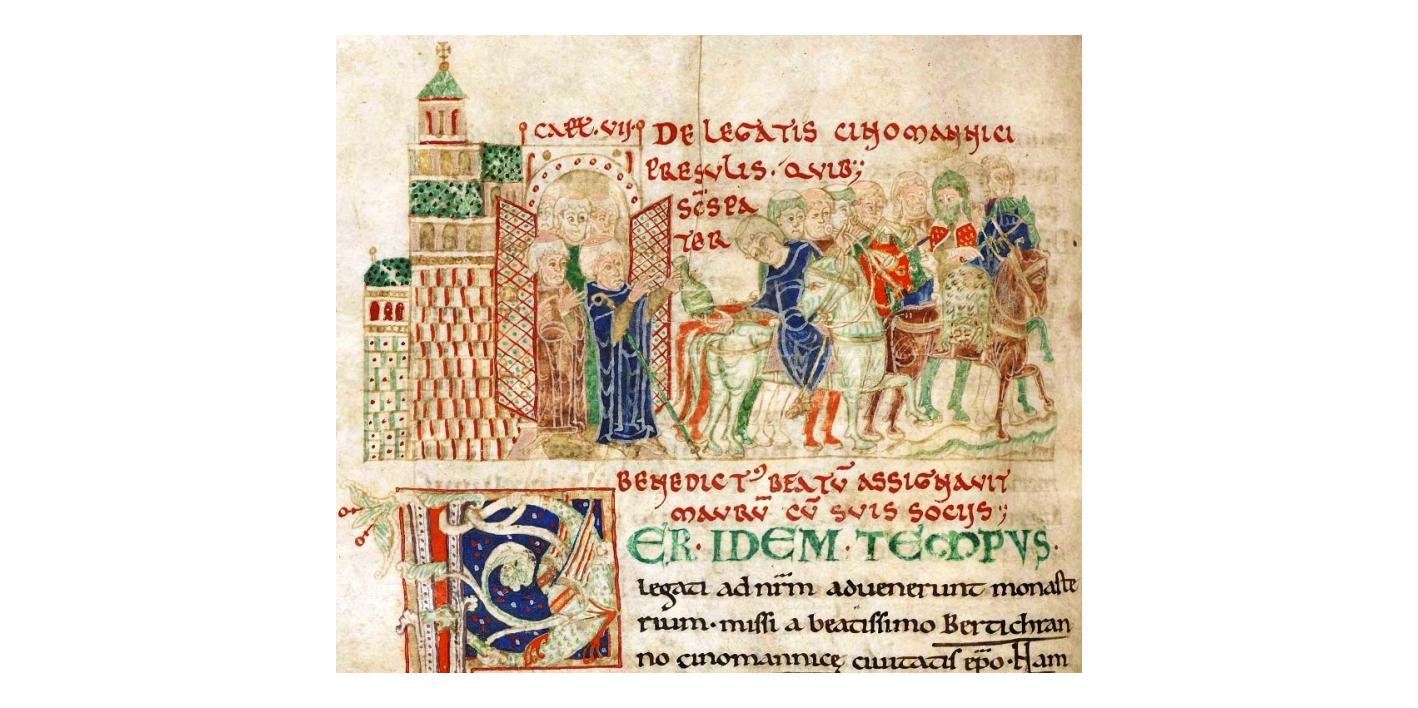 CAPƖT·VII· DE LEGATIS CINOMANNICI
PRESULIS· QUIB;
SC̄S PA
TER
BENEDICT᾿ BEATŪ ASSIGNAVIT
MAURŪ CŪ SUIS SOCIIS;
PER·IDEM·TEMPUS·
legati ad nr̄m advenerunt monaste
rium·missi a beatissimo Bertichran
no cinomannicę civitatis ep̄o·Nam